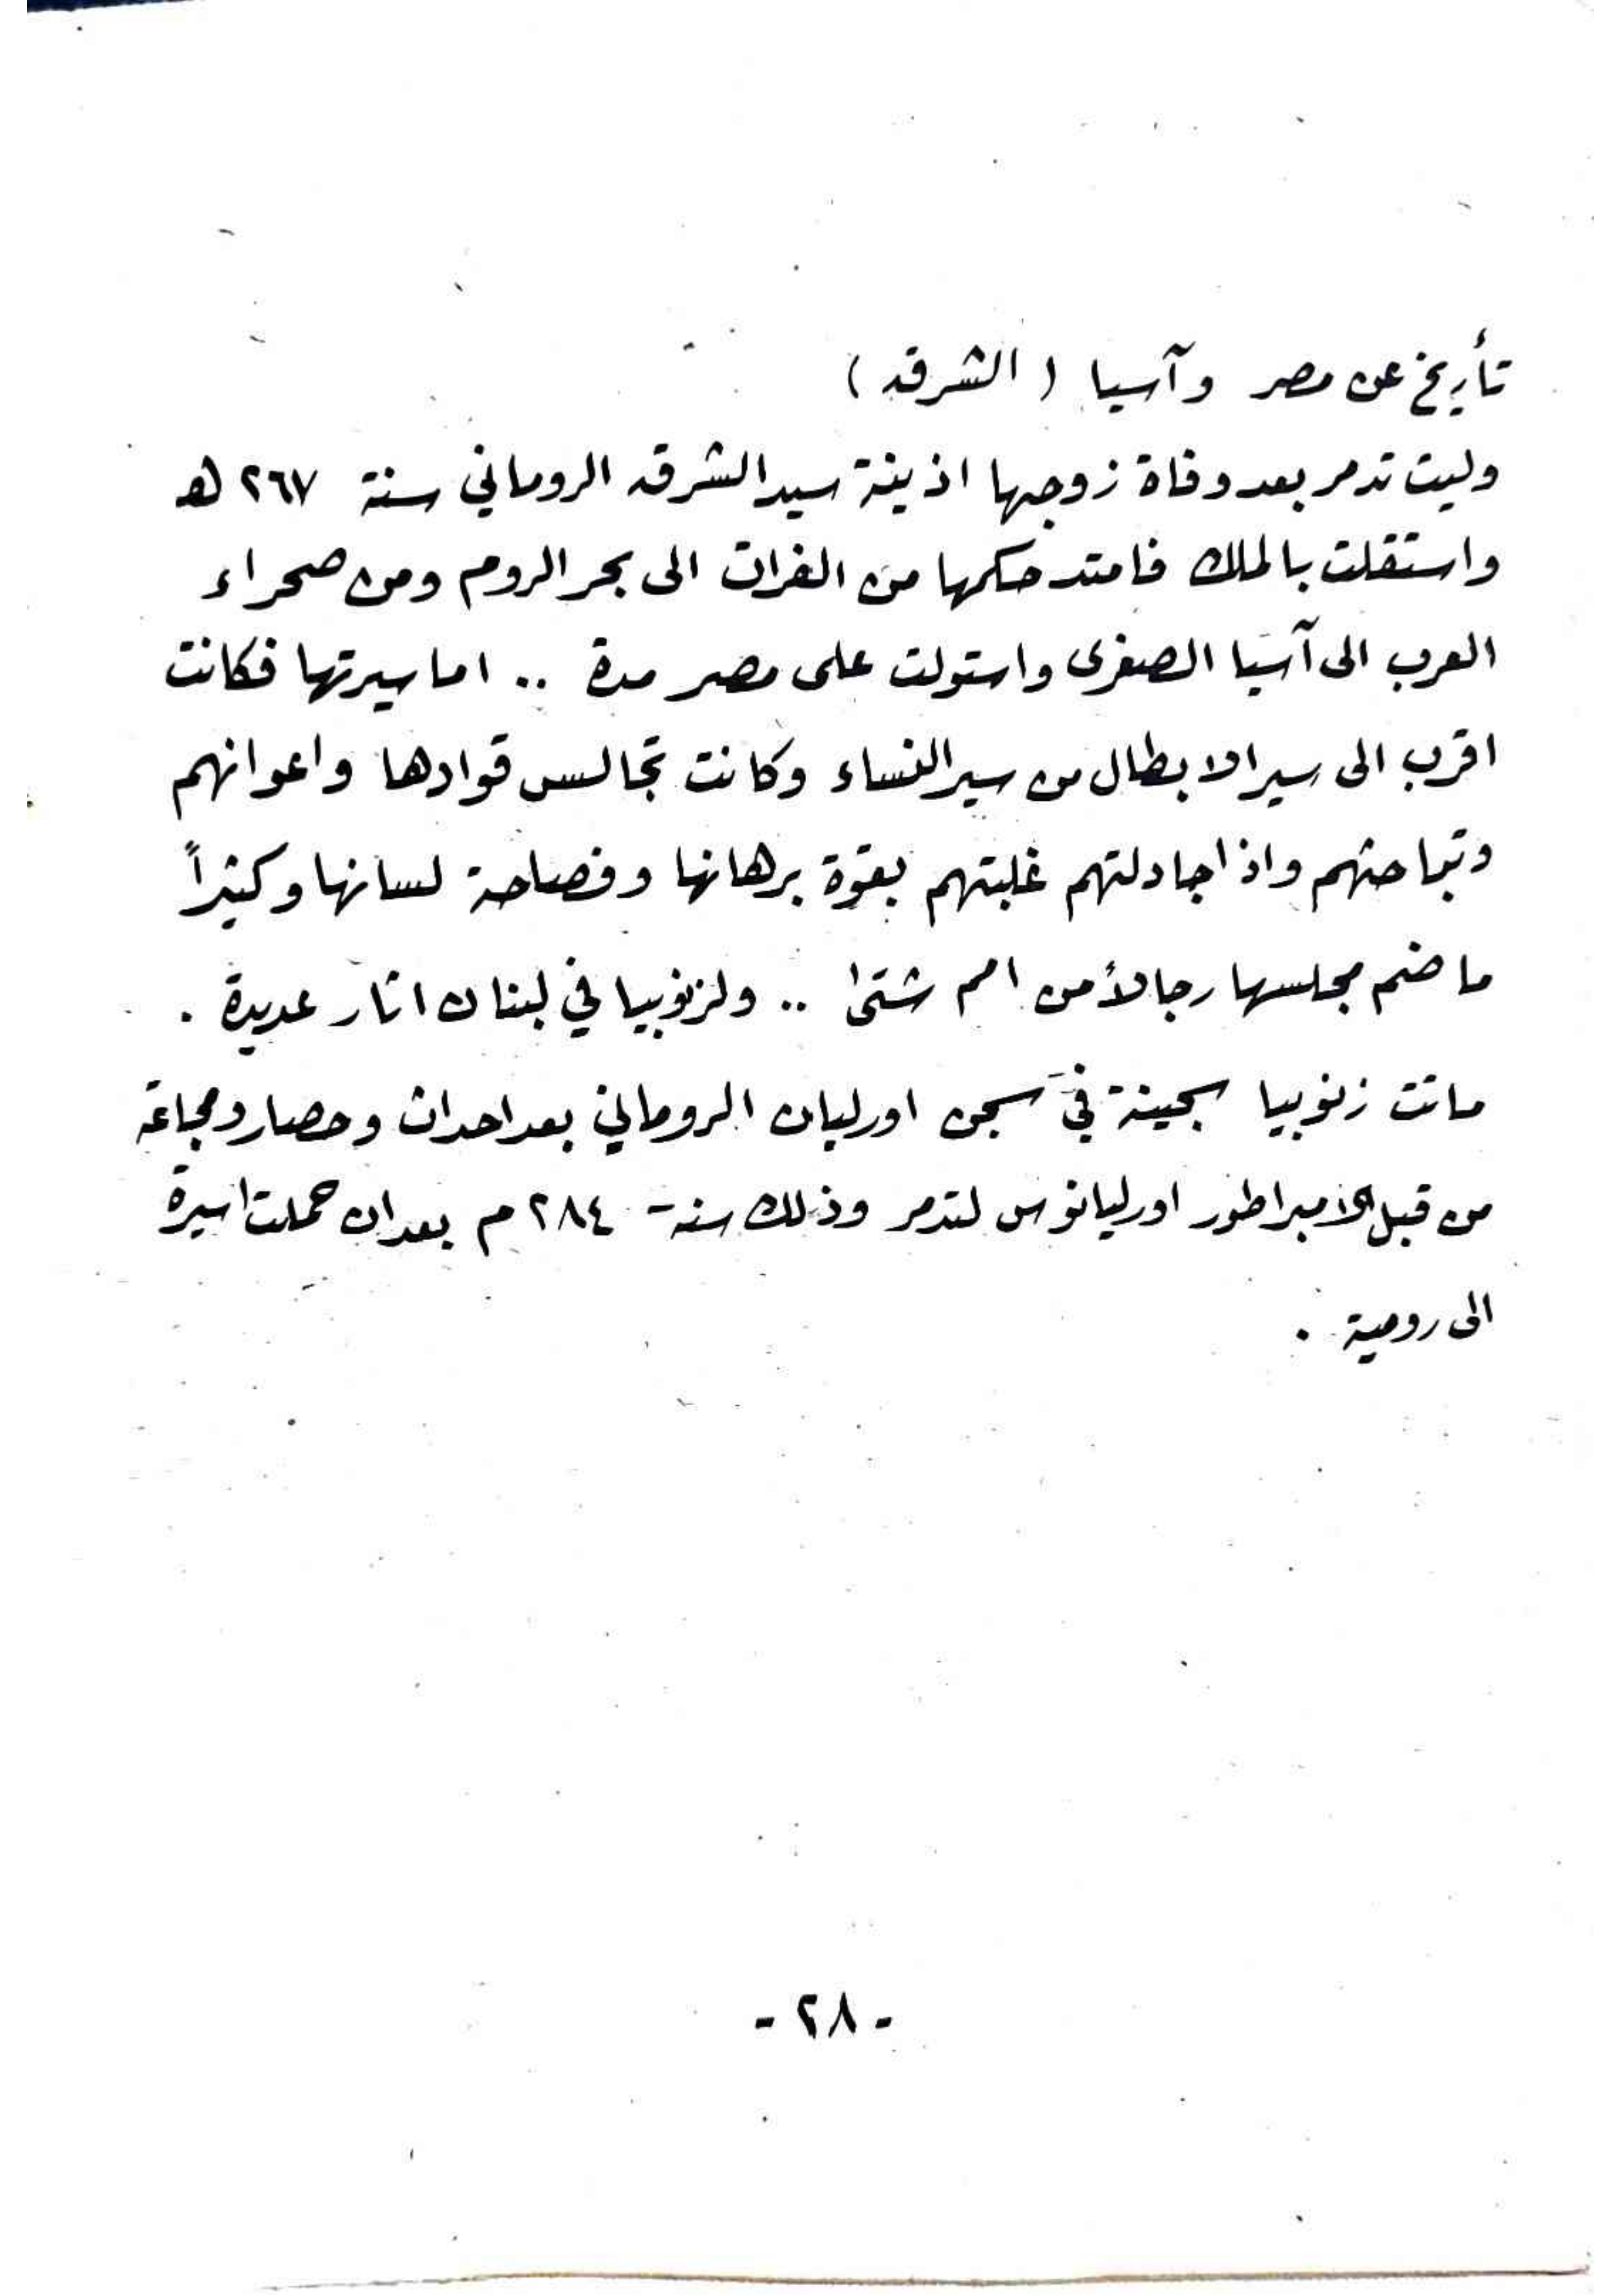 تأريخ عن مصر وآسيا (الشرق)
وليت تدمر بعد وفاة زوجها اذينة سيد الشرق الروماني سنة ٢٦٧ هـ
واستقلت بالملك فامتد حكمها من الفرات الى بحر الروم ومن صحراء
العرب الى آسيا الصغرى واستولت على مصر مدة .. اما سيرتها فكانت
اقرب الى سير الابطال من سير النساء وكانت تجالس قوادها واعوانهم
وتباحثهم واذا جادلتهم غلبتهم بقوة برهانها وفصاحة لسانها وكثيراً
ما ضم مجلسها رجالاً من امم شتى .. ولزنوبيا في لبنان اثار عديدة .
ماتت زنوبيا سجينة في سجن اورليان الروماني بعد احداث وحصار ومجاعة
من قبل الامبراطور اورليانوس لتدمر وذلك سنة ٢٨٤ م بعد ان حملت اسيرة
الى رومية .
- ٢٨ -